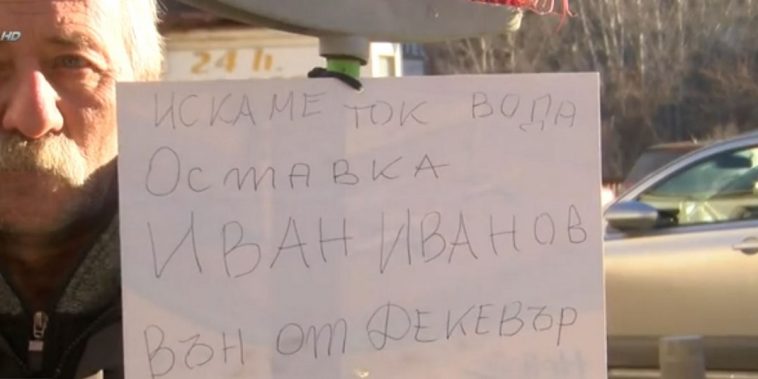 HD
24 h.
ИСКАМЕ ТОК ВОДА
ОСТАВКА
ИВАН ИВАНОВ
ВЪН ОТ ДЕКЕВЪР